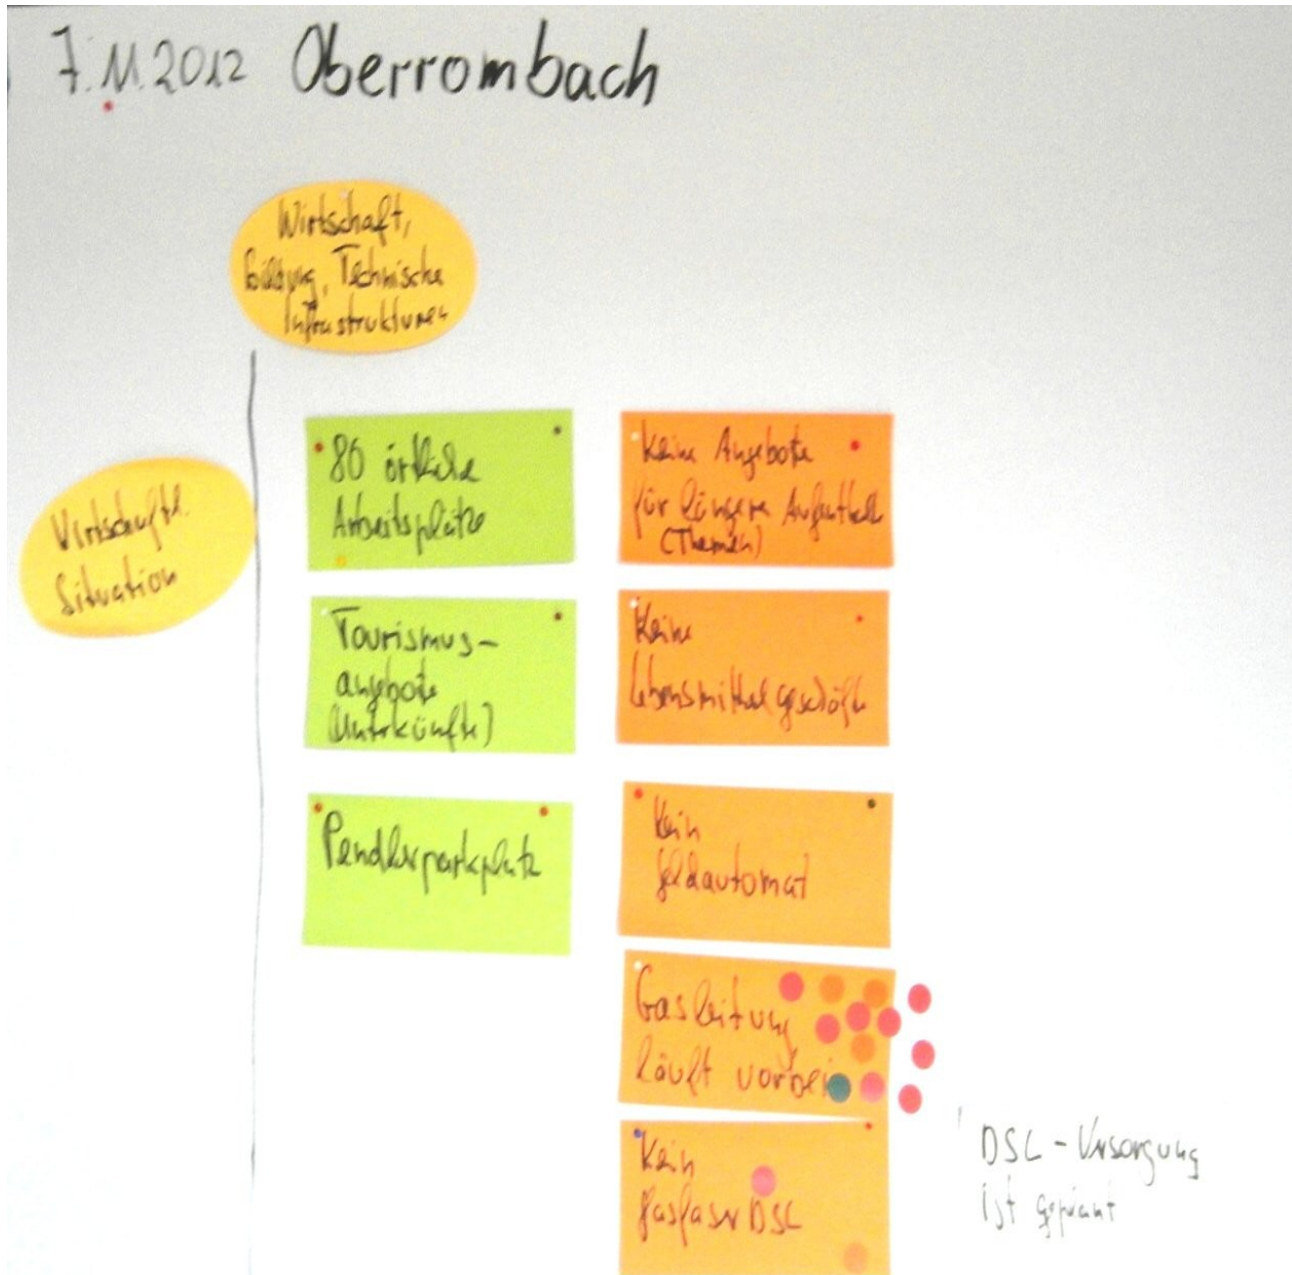 7.11.2012 Oberrombach
Wirtschaft,
Bildung, Technische
Infrastrukturen
Wirtschaftl.
Situation
80 örtliche
Arbeitsplätze
Tourismus-
angebote
(Unterkünfte)
Pendlerparkplatz
Keine Angebote
für längere Aufenthalte
(Themen)
Keine
Lebensmittelgeschäfte
Kein
Geldautomat
Gasleitung
läuft vorbei
Kein
Glasfaser DSL
DSL-Versorgung
ist geplant